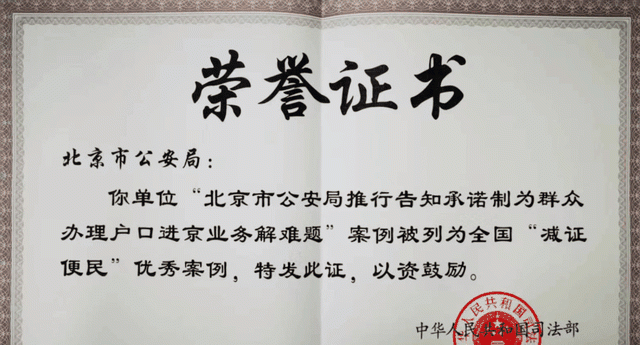 荣誉证书
北京市公安局：
你单位“北京市公安局推行告知承诺制为群众
办理户口进京业务解难题”案例被列为全国“减证
便民”优秀案例，特发此证，以资鼓励。
中华人民共和国司法部